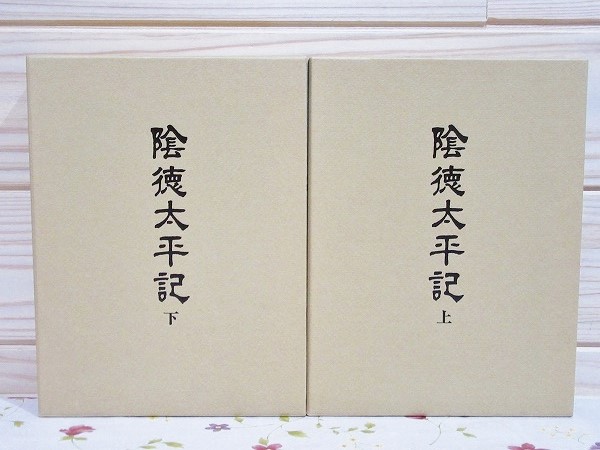 陰徳太平記
上
陰徳太平記
下